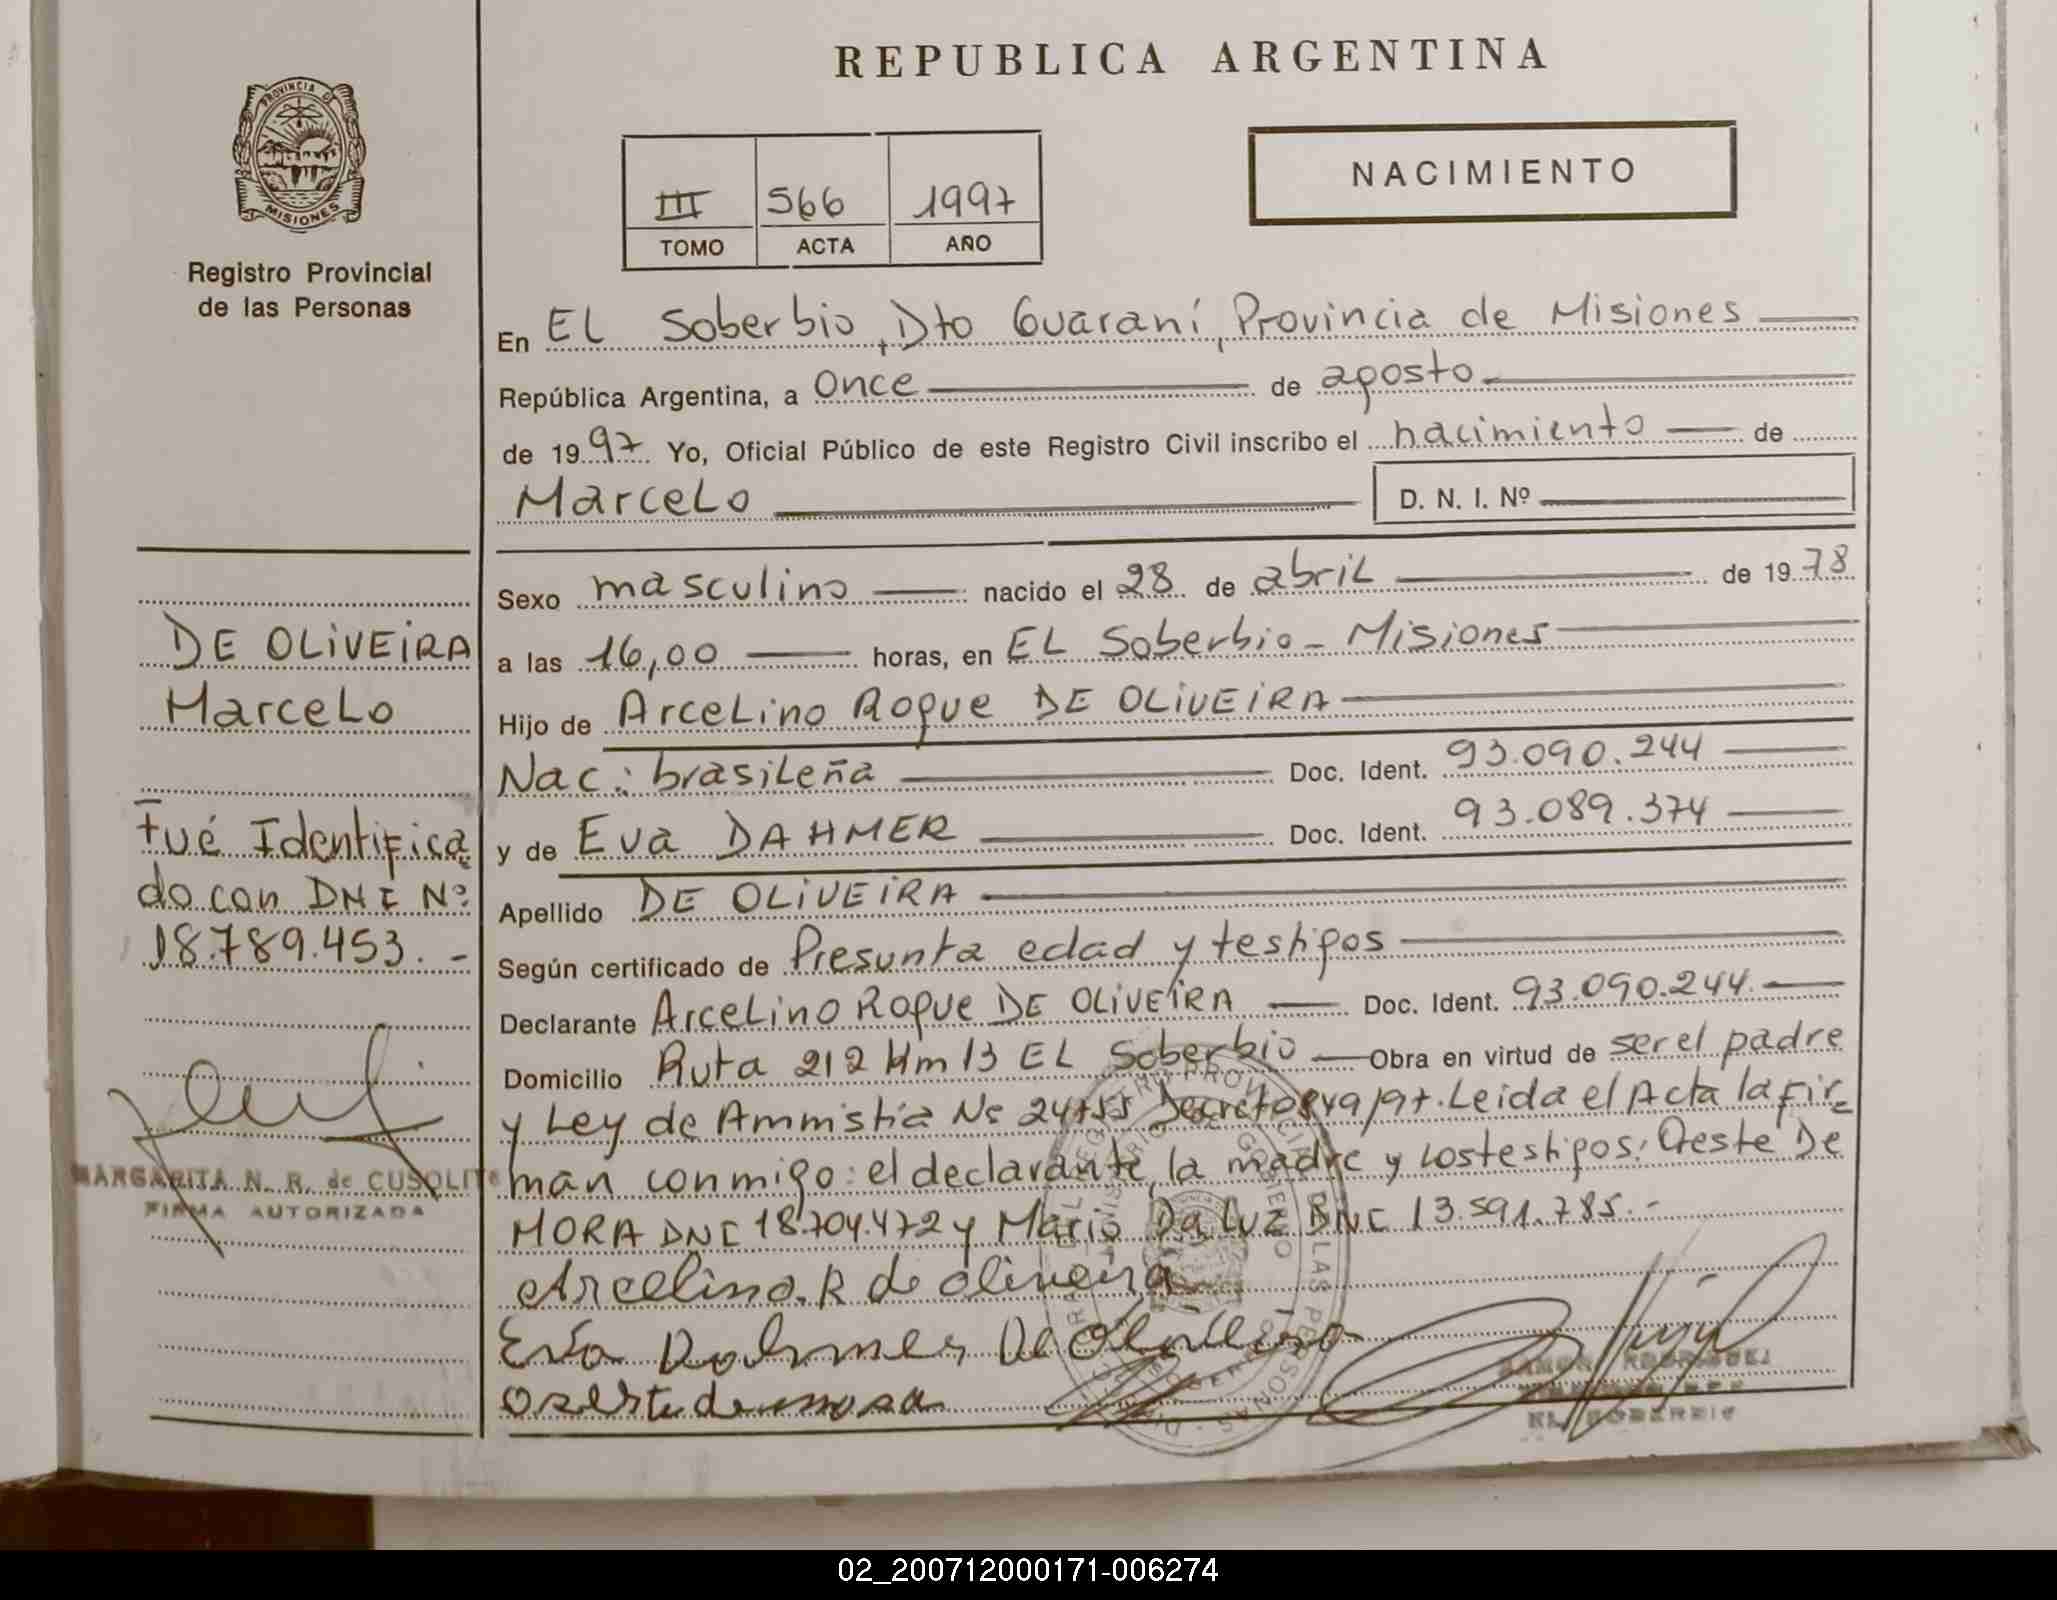 REPUBLICA ARGENTINA
PROVINCIA DE
MISIONES
Registro Provincial
de las Personas
III 566 1997
TOMO ACTA AÑO
NACIMIENTO
En EL Soberbio, Dto Guaraní, Provincia de Misiones
República Argentina, a Once de agosto
de 1997 Yo, Oficial Público de este Registro Civil inscribo el nacimiento de
Marcelo D. N. I. Nº
Sexo masculino nacido el 28 de abril de 1978
a las 16,00 horas, en EL Soberbio - Misiones
Hijo de Arcelino Roque DE OLIVEIRA
Nac: brasileña Doc. Ident. 93.090.244
y de Eva DAHMER Doc. Ident. 93.089.374
Apellido DE OLIVEIRA
Según certificado de Presunta edad y testigos
Declarante Arcelino Roque DE OLIVEIRA Doc. Ident. 93.090.244.
Domicilio Ruta 212 Km 13 EL Soberbio Obra en virtud de ser el padre
y Ley de Ammistia Nº 24755 Decreto 849/97. Leida el Acta la fir=
man conmigo: el declarante, la madre y los testigos: Oreste De
MORA DNI 18.704.472 y Mario Da Luz DNI 13.591.785.-
Arcelino. R de oliveira
Eva Dahmer De Oliveira
oreste de mora
RAMON RODRIGUEZ
EL SOBERBIO
DE OLIVEIRA
Marcelo
Fué Identifica
do con DNI Nº
18.789.453. -
MARGARITA N. R. de CUSOLITO
FIRMA AUTORIZADA
02_200712000171-006274